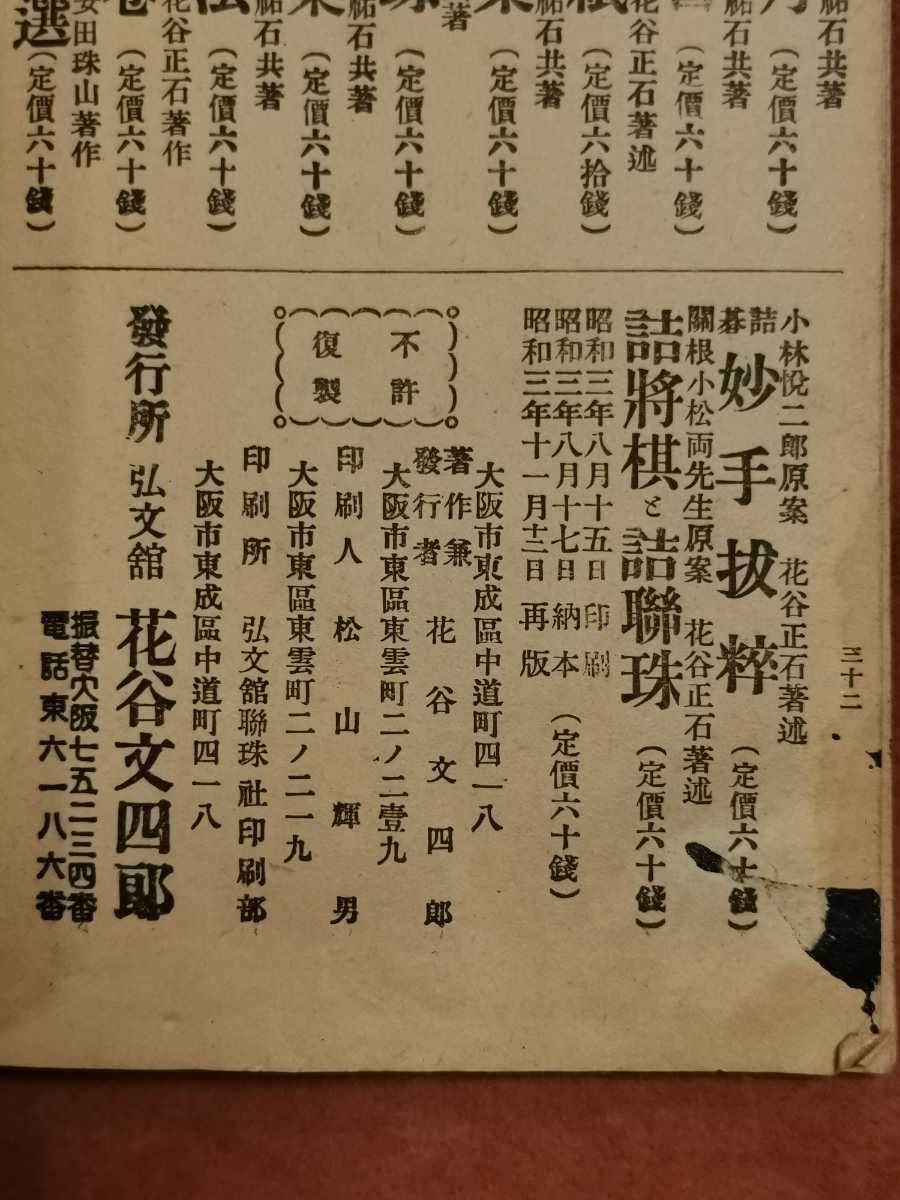 祐石共著
(定價六十錢)
祐石共著
(定價六十錢)
花谷正石著述
(定價六拾錢)
祐石共著
(定價六十錢)
著
(定價六十錢)
祐石共著
(定價六十錢)
祐石共著
(定價六十錢)
花谷正石著作
(定價六十錢)
安田珠山著作
選(定價六十錢)
三十二
小林悅二郎原案 花谷正石著述
詰碁 妙手拔粹(定價六十錢)
關根小松両先生原案 花谷正石著述
詰將棋と詰聯珠(定價六十錢)
昭和三年八月十五日印刷
昭和三年八月十七日納本(定價六十錢)
昭和三年十一月十二日再版
不許復製
大阪市東成區中道町四一八
著作兼發行者 花谷文四郎
大阪市東區東雲町二ノ二壹九
印刷人 松山輝男
大阪市東區東雲町二ノ二一九
印刷所 弘文舘聯珠社印刷部
大阪市東成區中道町四一八
發行所 弘文舘 花谷文四郎
振替大阪七五二三四番
電話東六一八六番